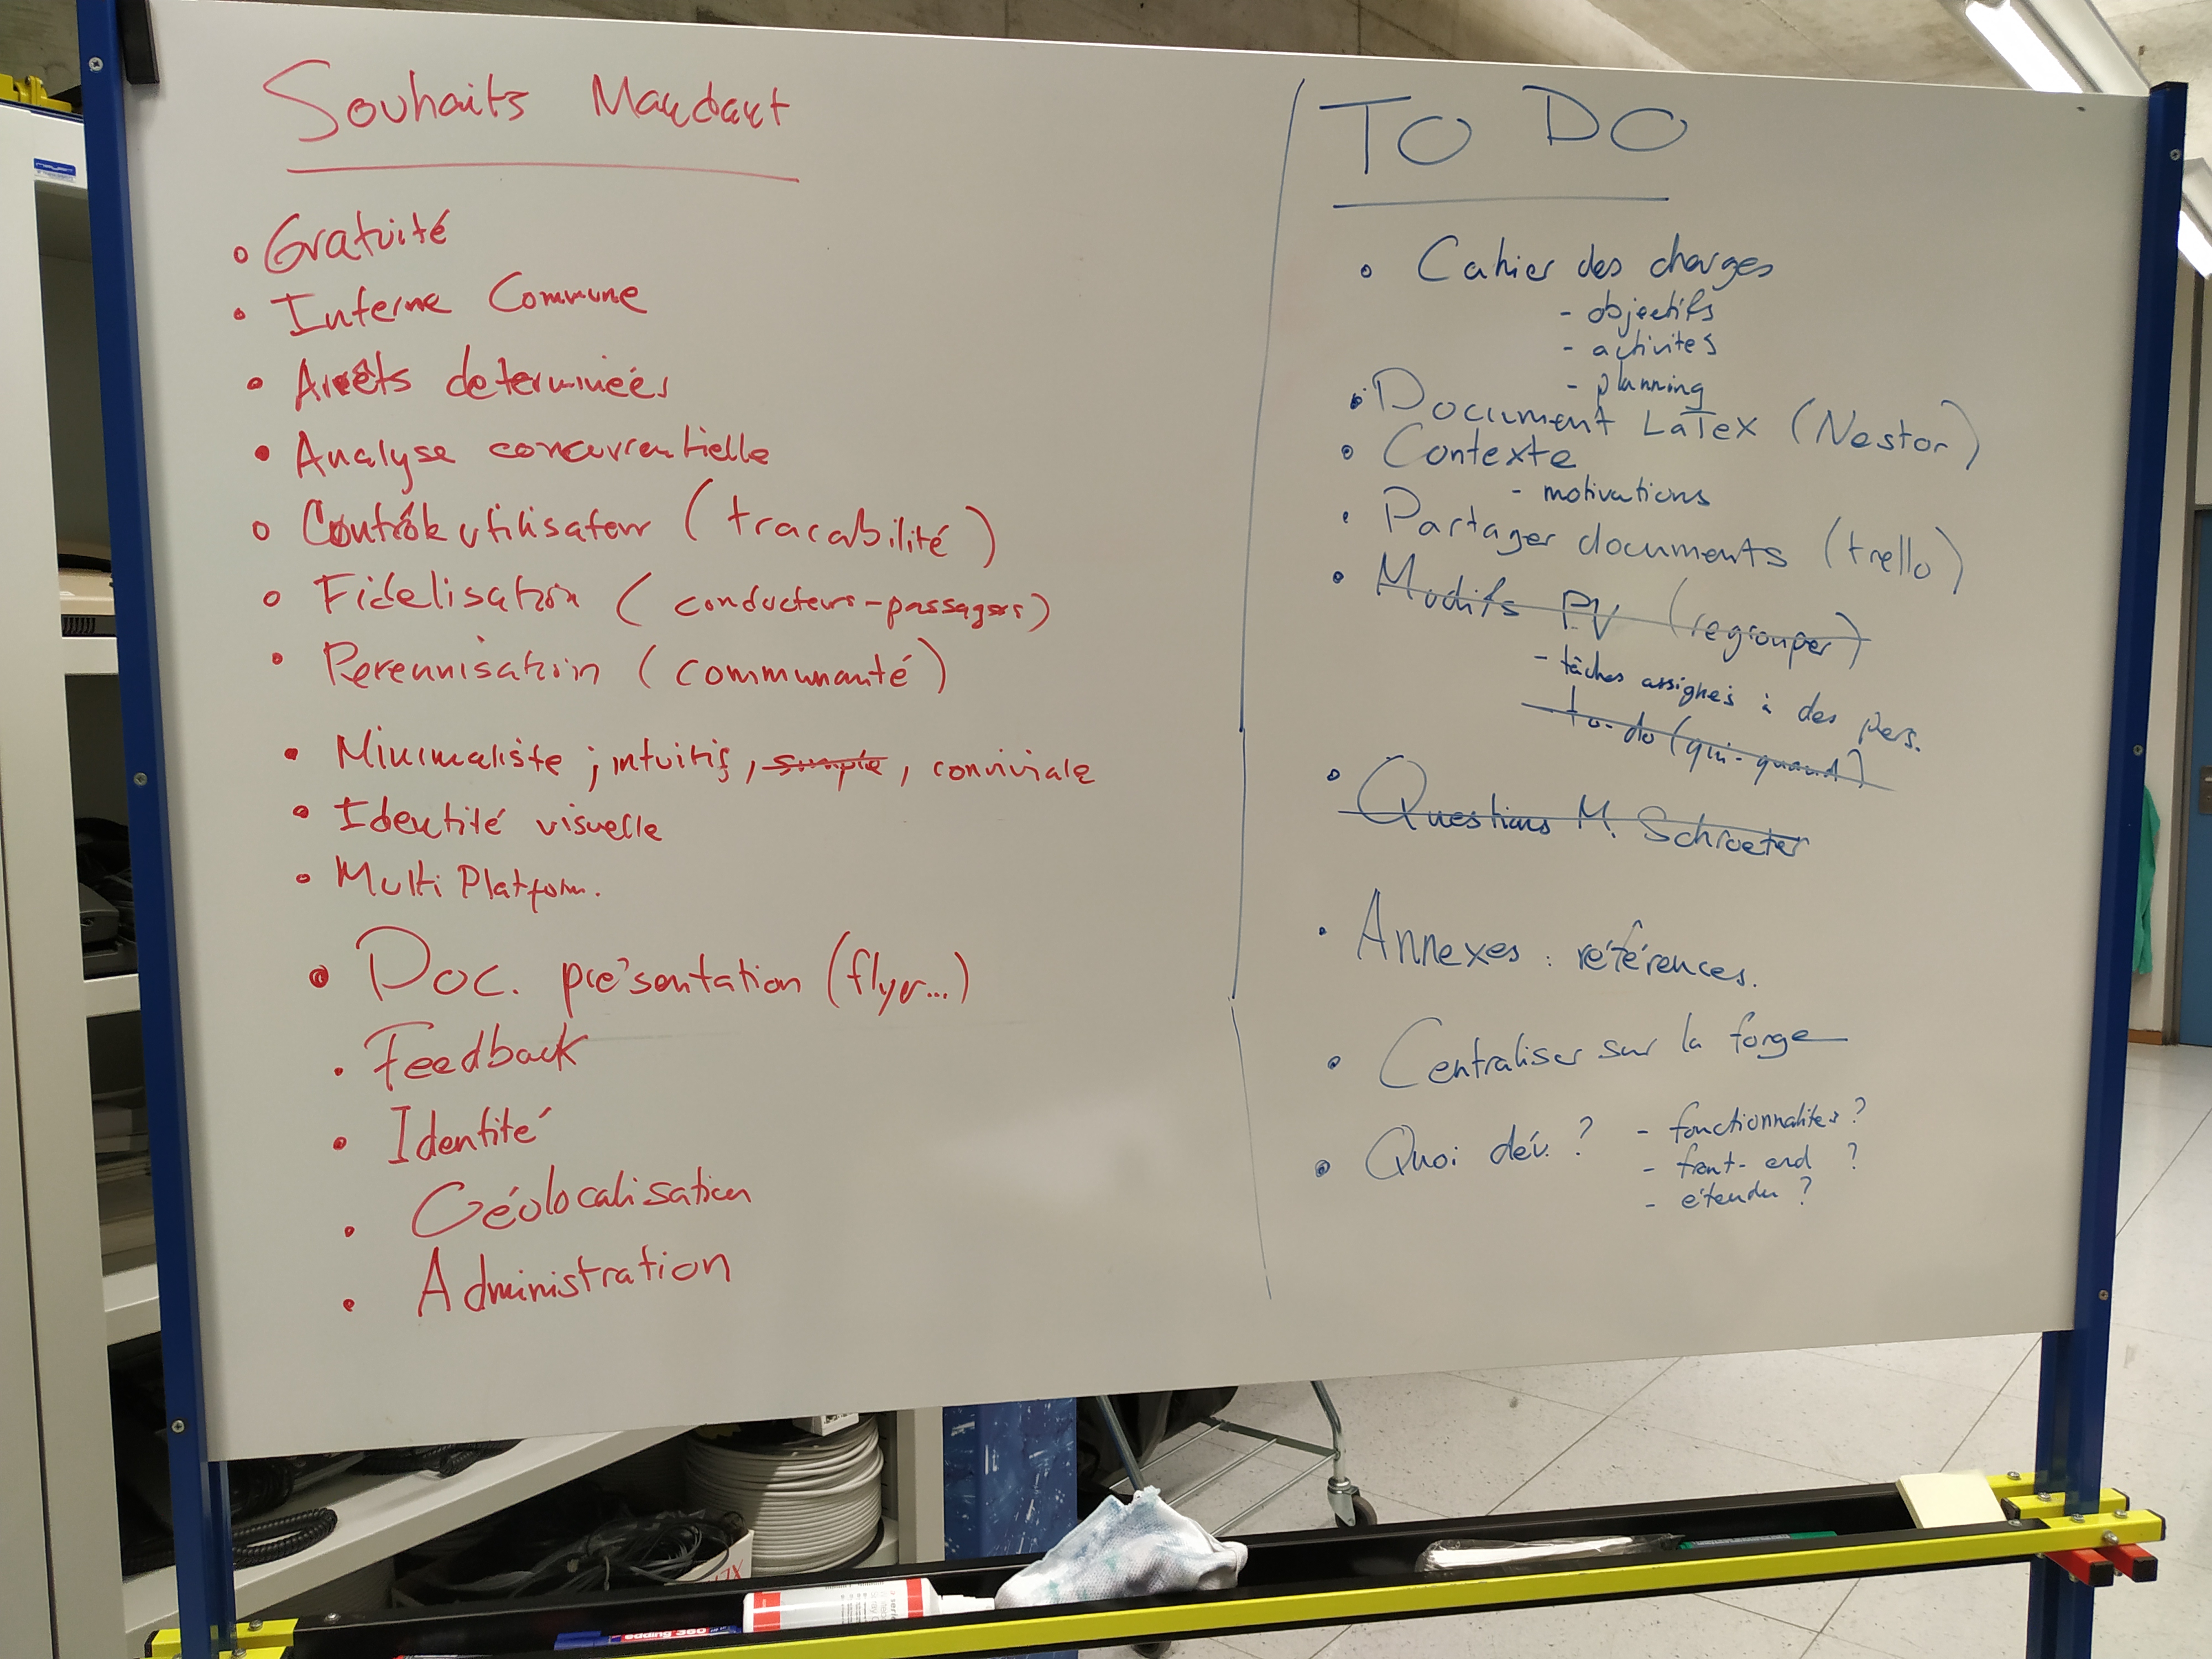 Souhaits Mandant
Gratuité
Interne Commune
Arrêts determinées
Analyse concurrentielle
Contrôle utilisateur (tracabilité)
Fidelisation (conducteurs-passagers)
Perennisation (communauté)
Minimaliste ; intuitif, simple, conviviale
Identité visuelle
Multi Platform.
Doc. présentation (flyer...)
Feedback
Identité
Géolocalisation
Administration
TO DO
Cahier des charges
- objectifs
- activites
- planning
Document LaTex (Nestor)
Contexte
- motivations
Partager documents (trello)
Modifs PV (regrouper)
- tâches assignés à des pers.
to-do (qui-quand)
Questions M. Schroeter
Annexes : références.
Centraliser sur la forge
Quoi dév. ? - fonctionnalites ?
- front-end ?
- étendu ?
edding 360